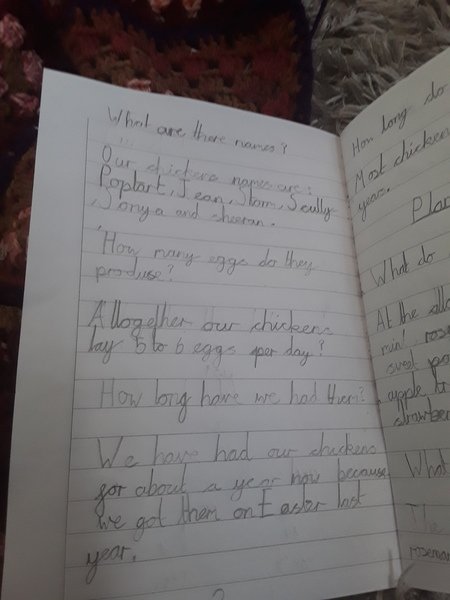 What are there names?
Our chickens names are:
Poptart, Jean, Storm, Scully
, Sonya and sheeran.
How many eggs do they
produse?
Alltogether our chickens
lay 5 to 6 eggs per day?
How long have we had them?
We have had our chickens
for about a year now because
we got them on Easter last
year.
How long do
Most chicken
year.
Plan
What do
At the allo
mint rose
sweet po
apple tr
strawber
What
The
roseman